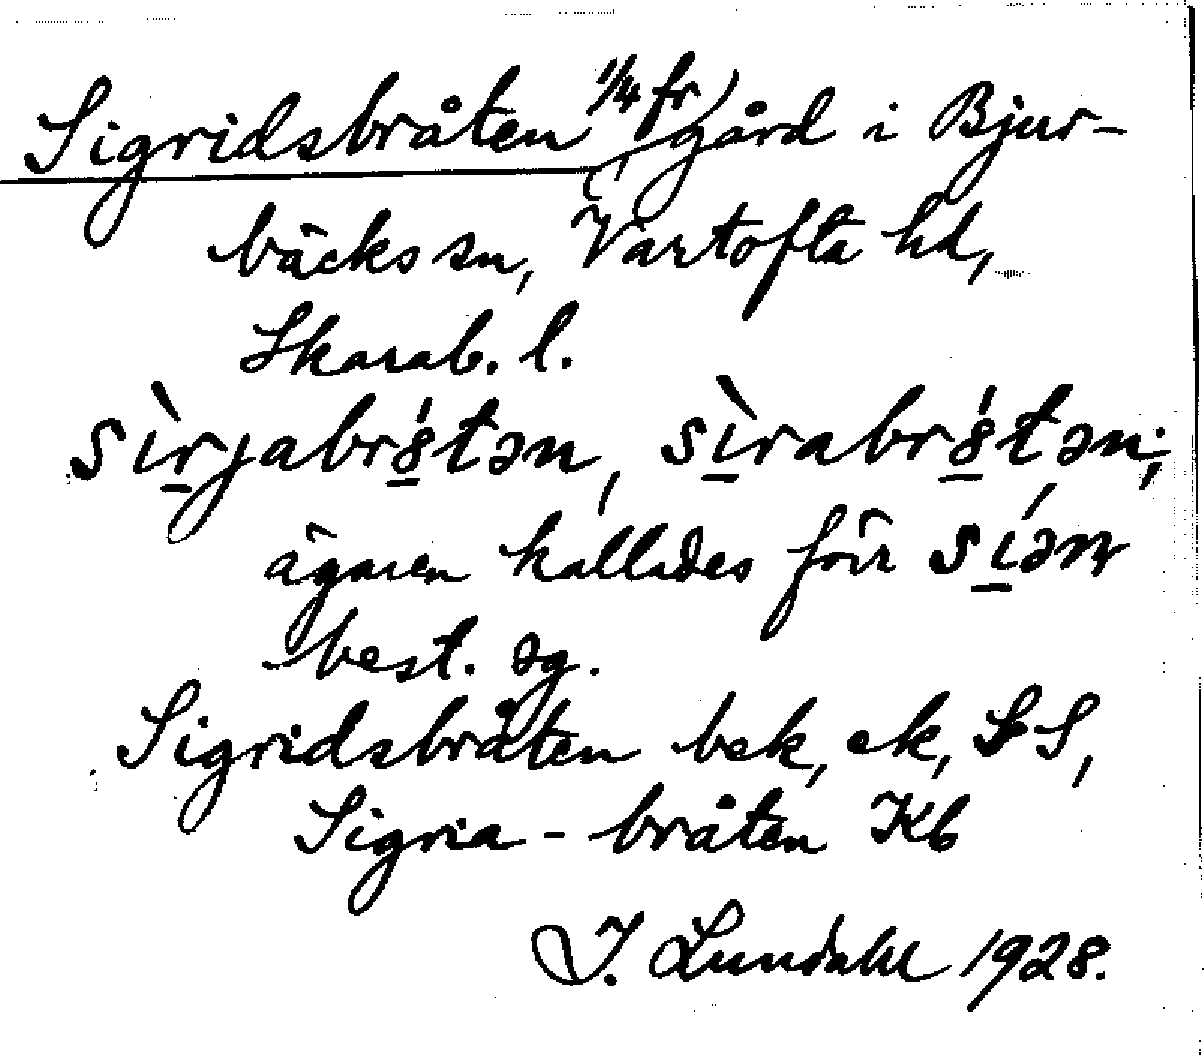 Sigridsbråten (1/4 fr) gård i Bjur-
bäcks sn, Vartofta hd,
Skarab. l.
sìrjabr8́tən, sìrabr8́tən;
ägaren kallades förr síən
best. sg.
Sigridsbråten bek, ek, SS,
Sigria-bråten Kb
I. Lundahl 1928.